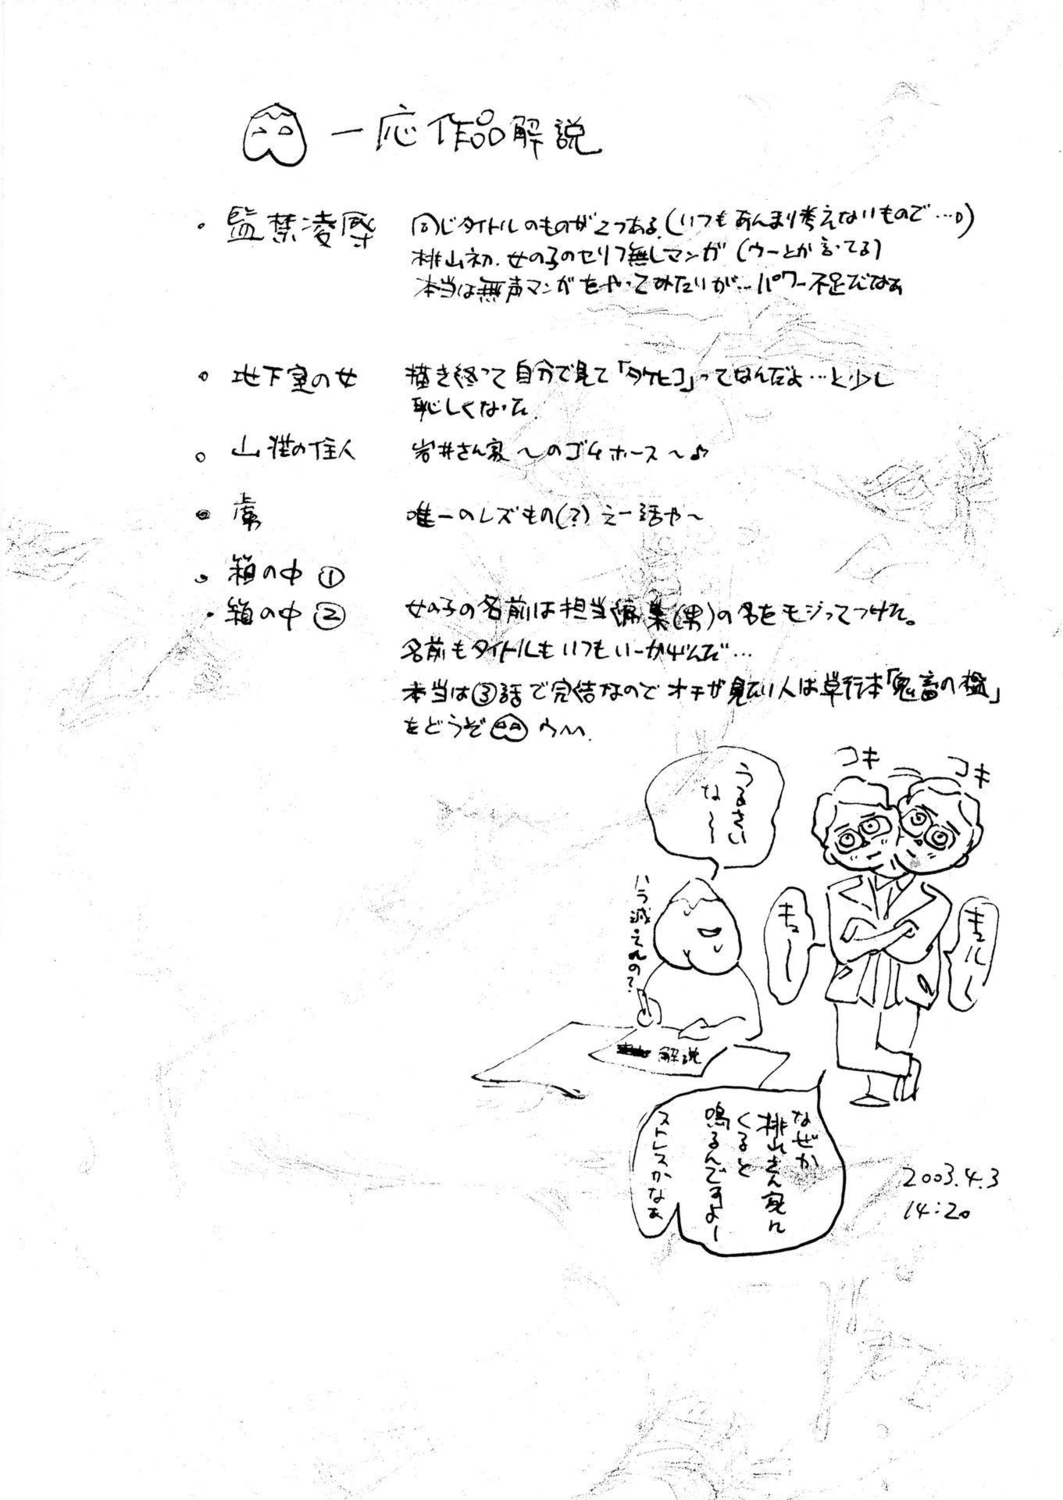 一応作品解説
・監禁凌辱 同じタイトルのものが2つある。(いつもあんまり考えないもので…)
桃山初、女の子のセリフ無しマンガ(ウーとか言ってる)
本当は無声マンガをやってみたいが…パワー不足だなぁ
・地下室の女 描き終って自分で見て「タケヒコ」ってなんだよ…と少し
恥しくなった。
・山荘の住人 岩井さん家〜のゴムホース〜♪
・虜 唯一のレズもの(?)えー話や〜
・箱の中①
・箱の中② 女の子の名前は担当編集(男)の名をモジってつけた。
名前もタイトルもいつもいーかげんだ…
本当は③話で完結なのでオチが見たい人は単行本「鬼畜の檻」
をどうぞ
うるさい
な〜〜
コキ
コキ
ハラ減ってんの?
キュー
キュルル
解説
なぜか
桃山さん家に
くると
鳴るんですよー
ストレスかなぁ
2003.4.3
14:20